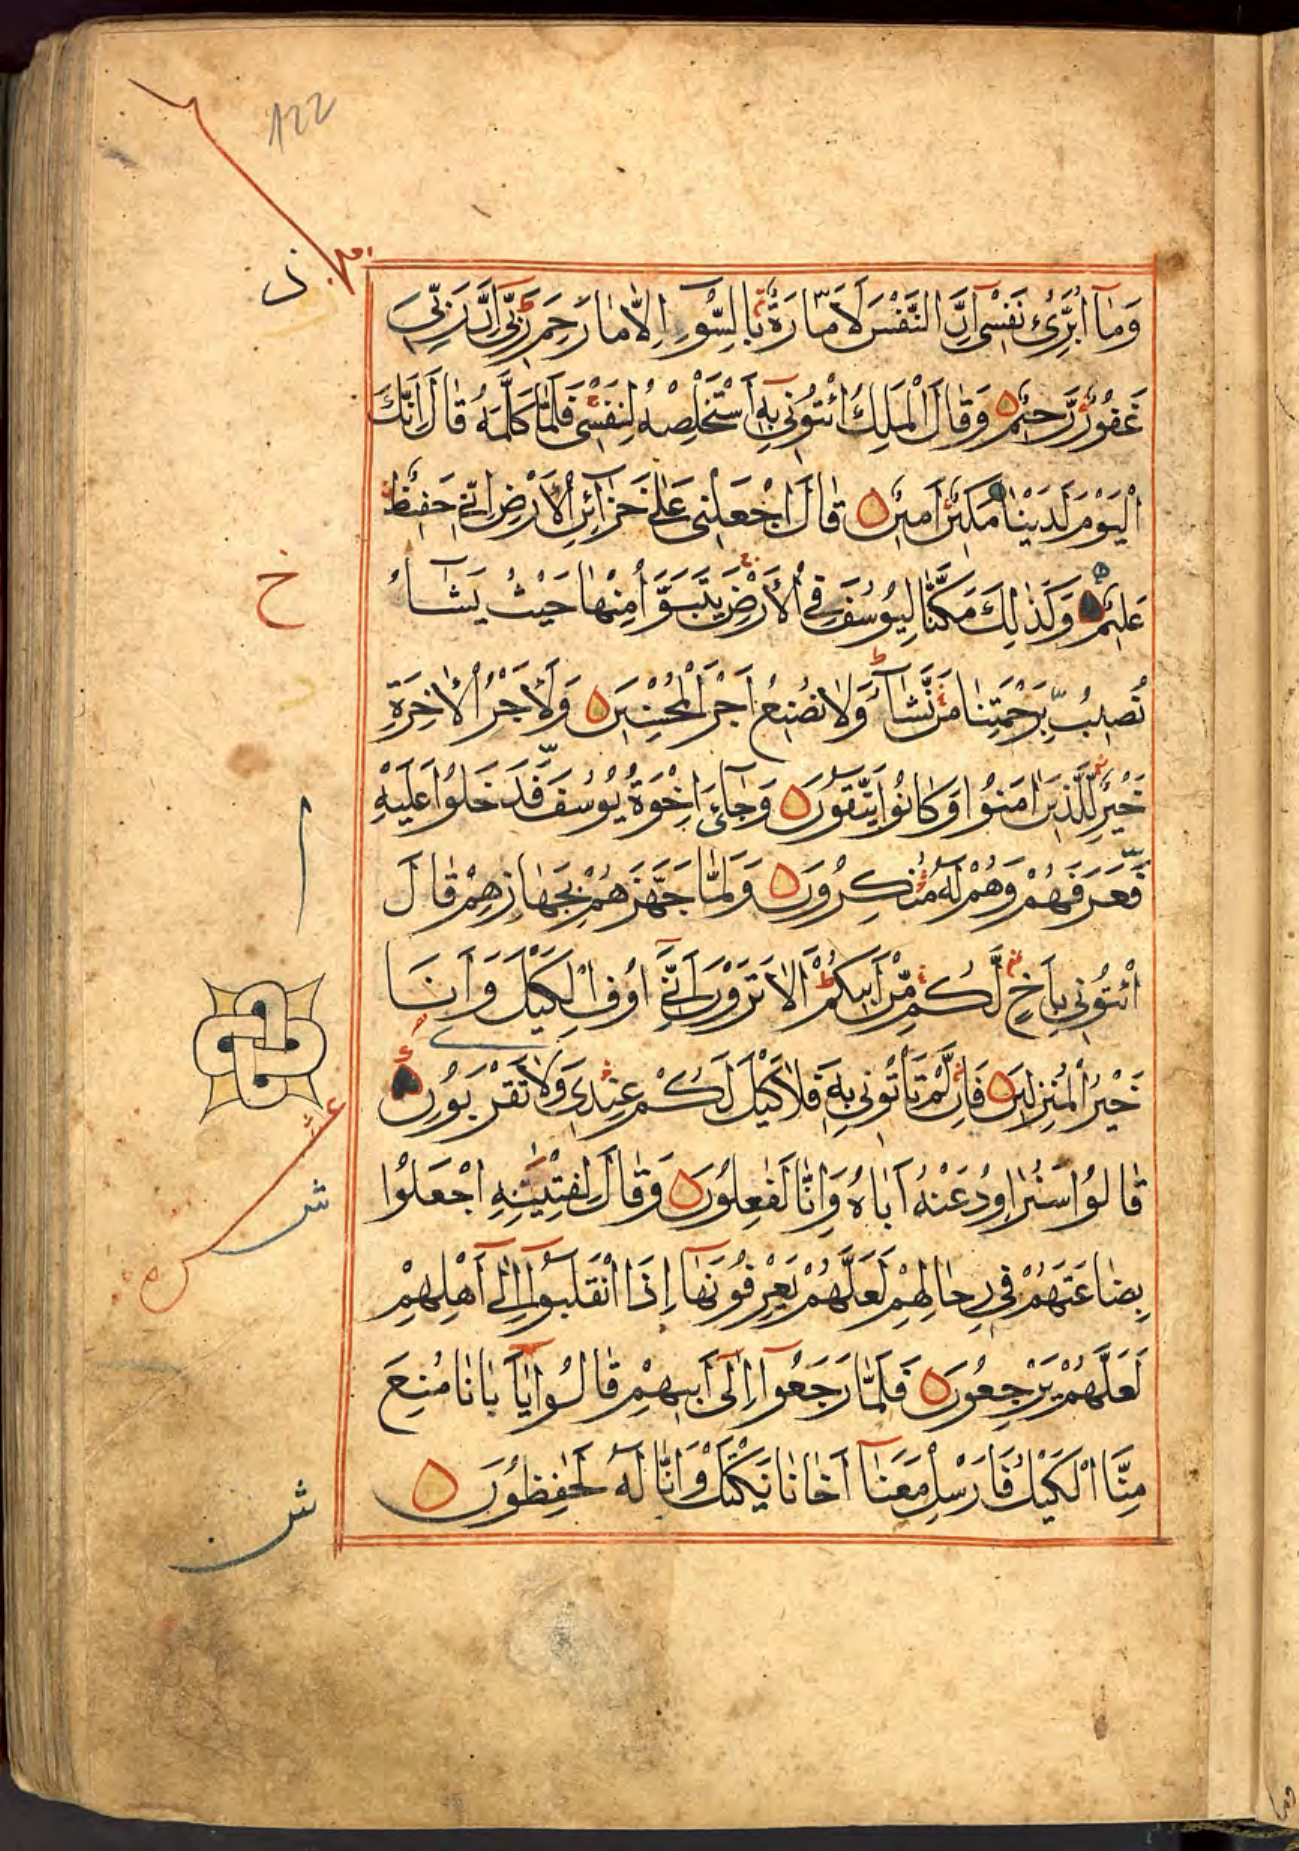 122
وَمَآ اُبَرِّئُ نَفْسٖٓى اِنَّ النَّفْسَ لَاَمَّارَةٌ بِالسُّوٓءِ اِلَّا مَا رَحِمَ رَبّٖى اِنَّ رَبّٖى
غَفُورٌ رَّحٖيْمٌ وَقَالَ الْمَلِكُ ائْتُوْنٖى بِهٖٓ اَسْتَخْلِصْهُ لِنَفْسٖى فَلَمَّا كَلَّمَهُ قَالَ اِنَّكَ
الْيَوْمَ لَدَيْنَا مَكٖيْنٌ اَمٖيْنٌ قَالَ اجْعَلْنٖى عَلٰى خَزَآئِنِ الْاَرْضِ اِنّٖى حَفٖيْظٌ
عَلٖيْمٌ وَكَذٰلِكَ مَكَّنَّا لِيُوْسُفَ فِى الْاَرْضِ يَتَبَوَّاُ مِنْهَا حَيْثُ يَشَآءُ
نُصٖيْبُ بِّرَحْمَتِنَا مَنْ نَّشَآءُ وَلَا نُضٖيْعُ اَجْرَ الْمُحْسِنٖيْنَ وَلَاَجْرُ الْاٰخِرَةِ
خَيْرٌ لِّلَّذٖيْنَ اٰمَنُوْا وَكَانُوْا يَتَّقُوْنَ وَجَآءَ اِخْوَةُ يُوْسُفَ فَّدَخَلُوْا عَلَيْهِ
فَّعَرَفَهُمْ وَهُمْ لَهٗ مُنْكِرُوْنَ وَلَمَّا جَهَّزَهُمْ بِجَهَازِهِمْ قَالَ
ائْتُوْنٖى بِاَخٍ لَّكُمْ مِّنْ اَبٖيْكُمْ اَلَا تَرَوْنَ اَنّٖٓى اُوْفِى الْكَيْلَ وَاَنَا
خَيْرُ الْمُنْزِلٖيْنَ فَاِنْ لَّمْ تَاْتُوْنٖى بِهٖ فَلَا كَيْلَ لَكُمْ عِنْدٖى وَلَا تَقْرَبُوْنِ
قَالُوْا سَنُرَاوِدُ عَنْهُ اَبَاهُ وَاِنَّا لَفٰعِلُوْنَ وَقَالَ لِفِتْيٰنِهِ اجْعَلُوْا
بِضَاعَتَهُمْ فٖى رِحَالِهِمْ لَعَلَّهُمْ يَعْرِفُوْنَهَآ اِذَا انْقَلَبُوْٓا اِلٰٓى اَهْلِهِمْ
لَعَلَّهُمْ يَرْجِعُوْنَ فَلَمَّا رَجَعُوْٓا اِلٰٓى اَبٖيْهِمْ قَالُوْا يٰٓاَبَانَا مُنِعَ
مِنَّا الْكَيْلُ فَاَرْسِلْ مَعَنَآ اَخَانَا نَكْتَلْ وَاِنَّا لَهٗ لَحٰفِظُوْنَ